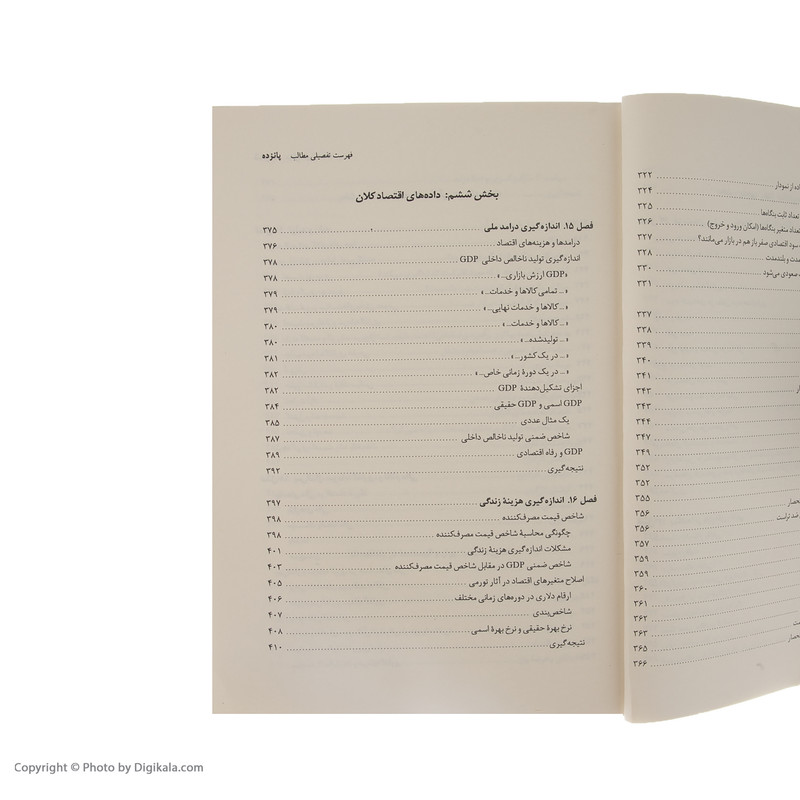 فهرست تفصیلی مطالب پانزده
بخش ششم: داده‌های اقتصاد کلان
فصل ۱۵. اندازه‌گیری درامد ملی ۳۷۵
درامدها و هزینه‌های اقتصاد ۳۷۶
اندازه‌گیری تولید ناخالص داخلی GDP ۳۷۸
«GDP ارزش بازاری...» ۳۷۸
«... تمامی کالاها و خدمات...» ۳۷۹
«... کالاها و خدمات نهایی...» ۳۷۹
«... کالاها و خدمات...» ۳۸۰
«... تولیدشده...» ۳۸۰
«... در یک کشور...» ۳۸۱
«... در یک دورهٔ زمانی خاص...» ۳۸۲
اجزای تشکیل‌دهندهٔ GDP ۳۸۲
GDP اسمی و GDP حقیقی ۳۸۴
یک مثال عددی ۳۸۵
شاخص ضمنی تولید ناخالص داخلی ۳۸۷
GDP و رفاه اقتصادی ۳۸۹
نتیجه‌گیری ۳۹۲
فصل ۱۶. اندازه‌گیری هزینهٔ زندگی ۳۹۷
شاخص قیمت مصرف‌کننده ۳۹۸
چگونگی محاسبهٔ شاخص قیمت مصرف‌کننده ۳۹۸
مشکلات اندازه‌گیری هزینهٔ زندگی ۴۰۱
شاخص ضمنی GDP در مقابل شاخص قیمت مصرف‌کننده ۴۰۳
اصلاح متغیرهای اقتصاد در آثار تورمی ۴۰۵
ارقام دلاری در دوره‌های زمانی مختلف ۴۰۶
شاخص‌بندی ۴۰۷
نرخ بهرهٔ حقیقی و نرخ بهرهٔ اسمی ۴۰۸
نتیجه‌گیری ۴۱۰
۳۲۲
از نمودار ۳۲۴
تعداد ثابت بنگاه‌ها ۳۲۵
متغیر بنگاه‌ها (امکان ورود و خروج) ۳۲۶
سود اقتصادی صفر باز هم در بازار می‌مانند؟ ۳۲۷
و بلندمدت ۳۲۸
صعودی می‌شود ۳۳۰
۳۳۱
۳۳۷
۳۳۸
۳۳۹
۳۴۰
۳۴۱
۳۴۳
۳۴۳
۳۴۴
۳۴۷
۳۴۹
۳۵۲
۳۵۲
۳۵۵
۳۵۶
ضد تراست ۳۵۶
۳۵۷
۳۵۹
۳۵۹
۳۶۰
۳۶۱
۳۶۲
۳۶۳
۳۶۵
۳۶۶
Copyright © Photo by Digikala.com